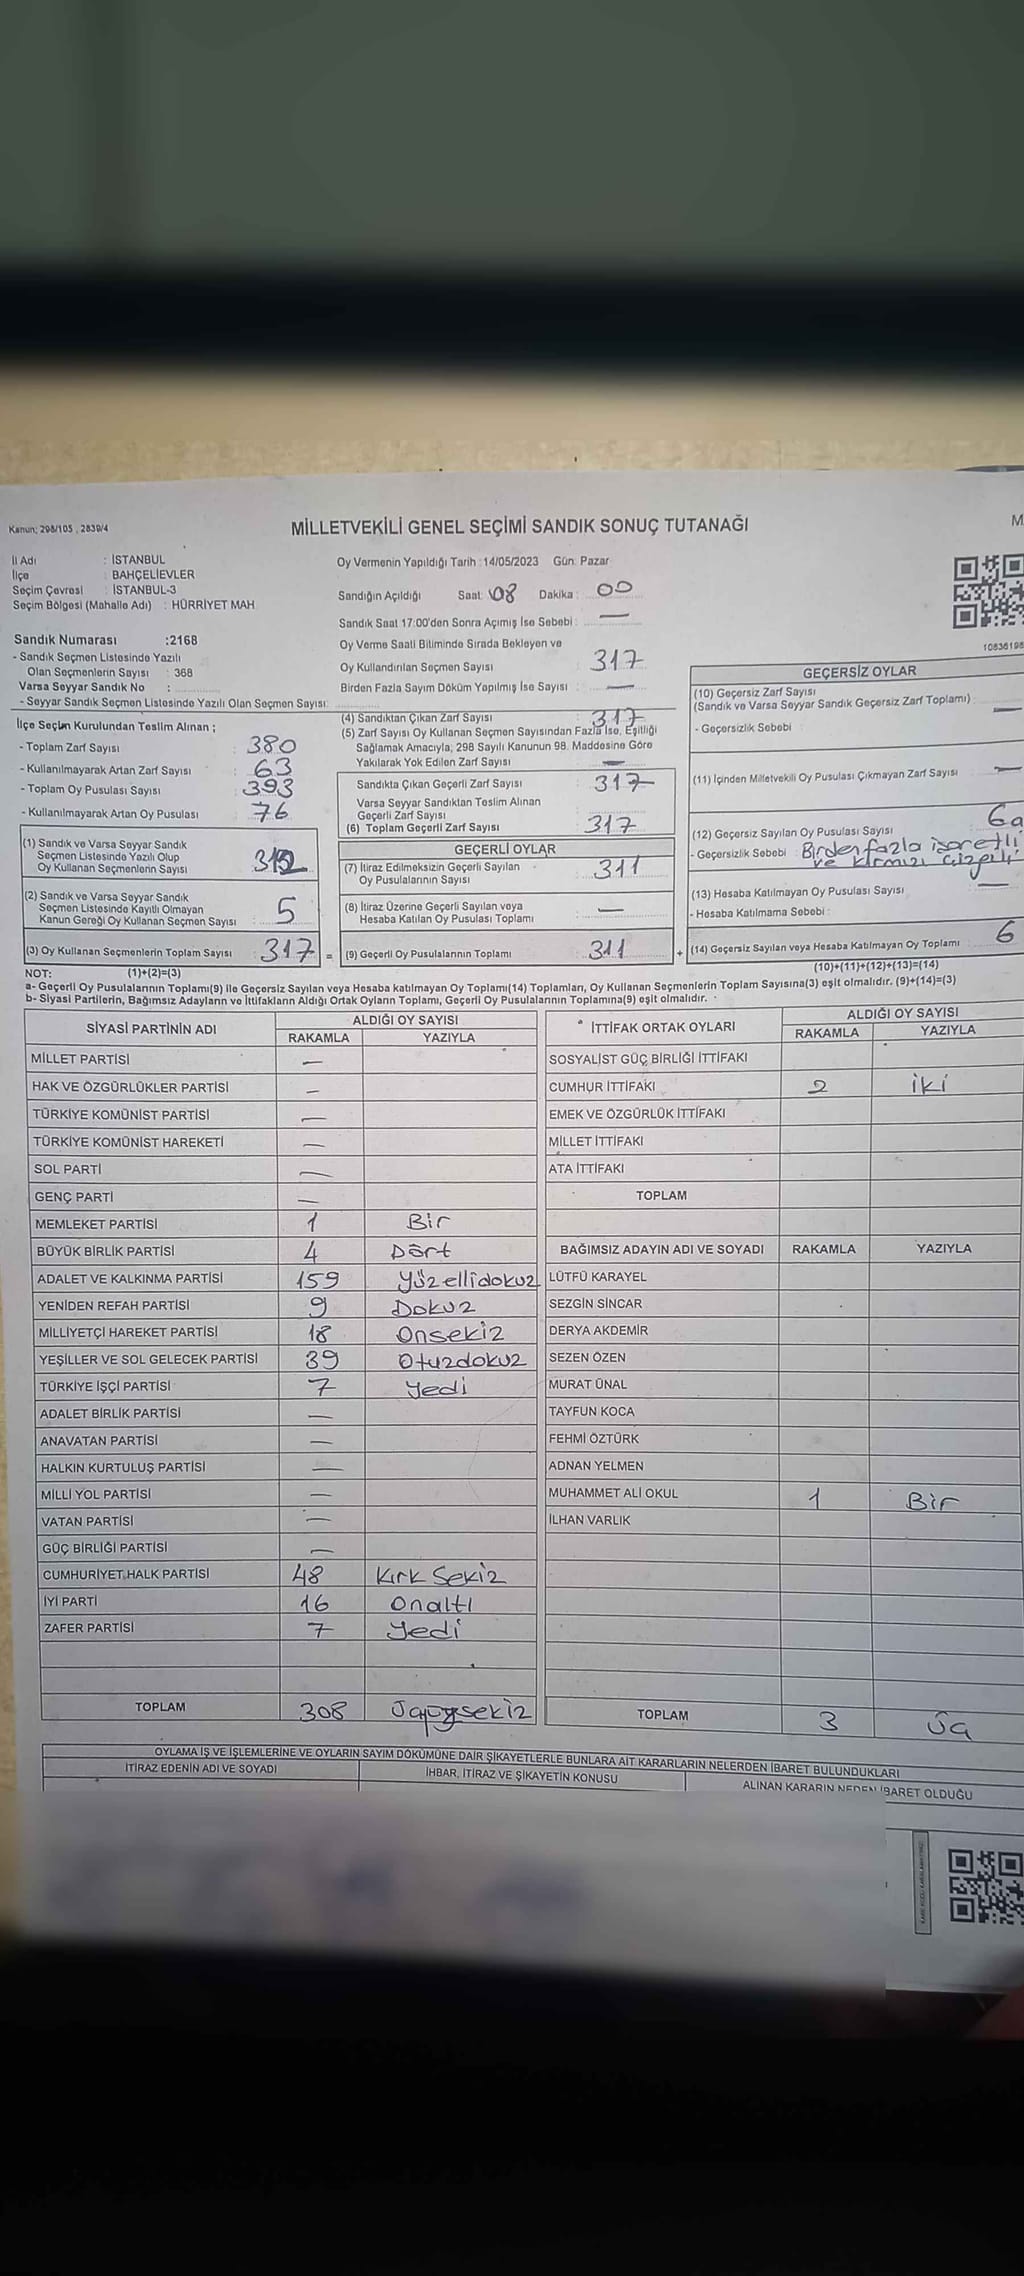 Kanun; 298/105 , 2839/4
MİLLETVEKİLİ GENEL SEÇİMİ SANDIK SONUÇ TUTANAĞI
İl Adı : İSTANBUL
İlçe : BAHÇELİEVLER
Seçim Çevresi : İSTANBUL-3
Seçim Bölgesi (Mahalle Adı) : HÜRRİYET MAH
Sandık Numarası :2168
- Sandık Seçmen Listesinde Yazılı
Olan Seçmenlerin Sayısı : 368
Varsa Seyyar Sandık No :
- Seyyar Sandık Seçmen Listesinde Yazılı Olan Seçmen Sayısı:
Oy Vermenin Yapıldığı Tarih :14/05/2023 Gün: Pazar
Sandığın Açıldığı Saat: 08 Dakika : 00
Sandık Saat 17:00'den Sonra Açımış İse Sebebi : —
Oy Verme Saati Bitiminde Sırada Bekleyen ve
Oy Kullandırılan Seçmen Sayısı 317
Birden Fazla Sayım Döküm Yapılmış İse Sayısı : —
10636198
İlçe Seçim Kurulundan Teslim Alınan ;
- Toplam Zarf Sayısı : 380
- Kullanılmayarak Artan Zarf Sayısı : 63
- Toplam Oy Pusulası Sayısı : 393
- Kullanılmayarak Artan Oy Pusulası : 76
(1) Sandık ve Varsa Seyyar Sandık
Seçmen Listesinde Yazılı Olup
Oy Kullanan Seçmenlerin Sayısı : 312
(2) Sandık ve Varsa Seyyar Sandık
Seçmen Listesinde Kayıtlı Olmayan
Kanun Gereği Oy Kullanan Seçmen Sayısı : 5
(3) Oy Kullanan Seçmenlerin Toplam Sayısı : 317 =
(4) Sandıktan Çıkan Zarf Sayısı : 317
(5) Zarf Sayısı Oy Kullanan Seçmen Sayısından Fazla İse, Eşitliği
Sağlamak Amacıyla; 298 Sayılı Kanunun 98. Maddesine Göre
Yakılarak Yok Edilen Zarf Sayısı : —
Sandıkta Çıkan Geçerli Zarf Sayısı : 317
Varsa Seyyar Sandıktan Teslim Alınan
Geçerli Zarf Sayısı :
(6) Toplam Geçerli Zarf Sayısı : 317
GEÇERLİ OYLAR
(7) İtiraz Edilmeksizin Geçerli Sayılan
Oy Pusulalarının Sayısı : 311
(8) İtiraz Üzerine Geçerli Sayılan veya
Hesaba Katılan Oy Pusulası Toplamı : —
(9) Geçerli Oy Pusulalarının Toplamı : 311 +
GEÇERSİZ OYLAR
(10) Geçersiz Zarf Sayısı
(Sandık ve Varsa Seyyar Sandık Geçersiz Zarf Toplamı) : —
- Geçersizlik Sebebi :
(11) İçinden Milletvekili Oy Pusulası Çıkmayan Zarf Sayısı : —
(12) Geçersiz Sayılan Oy Pusulası Sayısı : 6
- Geçersizlik Sebebi : Birden fazla işaretli
ve kırmızı çizgili
(13) Hesaba Katılmayan Oy Pusulası Sayısı : —
- Hesaba Katılmama Sebebi :
(14) Geçersiz Sayılan veya Hesaba Katılmayan Oy Toplamı : 6
NOT: (1)+(2)=(3) (10)+(11)+(12)+(13)=(14)
a- Geçerli Oy Pusulalarının Toplamı(9) ile Geçersiz Sayılan veya Hesaba katılmayan Oy Toplamı(14) Toplamları, Oy Kullanan Seçmenlerin Toplam Sayısına(3) eşit olmalıdır. (9)+(14)=(3)
b- Siyasi Partilerin, Bağımsız Adayların ve İttifakların Aldığı Ortak Oyların Toplamı, Geçerli Oy Pusulalarının Toplamına(9) eşit olmalıdır.
SİYASİ PARTİNİN ADI ALDIĞI OY SAYISI
RAKAMLA YAZIYLA
MİLLET PARTİSİ —
HAK VE ÖZGÜRLÜKLER PARTİSİ —
TÜRKİYE KOMÜNİST PARTİSİ —
TÜRKİYE KOMÜNİST HAREKETİ —
SOL PARTİ —
GENÇ PARTİ —
MEMLEKET PARTİSİ 1 Bir
BÜYÜK BİRLİK PARTİSİ 4 Dört
ADALET VE KALKINMA PARTİSİ 159 Yüzellidokuz
YENİDEN REFAH PARTİSİ 9 Dokuz
MİLLİYETÇİ HAREKET PARTİSİ 18 Onsekiz
YEŞİLLER VE SOL GELECEK PARTİSİ 39 Otuzdokuz
TÜRKİYE İŞÇİ PARTİSİ 7 Yedi
ADALET BİRLİK PARTİSİ —
ANAVATAN PARTİSİ —
HALKIN KURTULUŞ PARTİSİ —
MİLLİ YOL PARTİSİ —
VATAN PARTİSİ —
GÜÇ BİRLİĞİ PARTİSİ —
CUMHURİYET HALK PARTİSİ 48 Kırk Sekiz
İYİ PARTİ 16 Onaltı
ZAFER PARTİSİ 7 Yedi
TOPLAM 308
İTTİFAK ORTAK OYLARI ALDIĞI OY SAYISI
RAKAMLA YAZIYLA
SOSYALİST GÜÇ BİRLİĞİ İTTİFAKI
CUMHUR İTTİFAKI 2 İki
EMEK VE ÖZGÜRLÜK İTTİFAKI
MİLLET İTTİFAKI
ATA İTTİFAKI
TOPLAM
BAĞIMSIZ ADAYIN ADI VE SOYADI RAKAMLA YAZIYLA
LÜTFÜ KARAYEL
SEZGİN SİNCAR
DERYA AKDEMİR
SEZEN ÖZEN
MURAT ÜNAL
TAYFUN KOCA
FEHMİ ÖZTÜRK
ADNAN YELMEN
MUHAMMET ALİ OKUL 1 Bir
İLHAN VARLIK
TOPLAM 3 Üç
OYLAMA İŞ VE İŞLEMLERİNE VE OYLARIN SAYIM DÖKÜMÜNE DAİR ŞİKAYETLERLE BUNLARA AİT KARARLARIN NELERDEN İBARET BULUNDUKLARI
İTİRAZ EDENİN ADI VE SOYADI İHBAR, İTİRAZ VE ŞİKAYETİN KONUSU ALINAN KARARIN NEDEN İBARET OLDUĞU